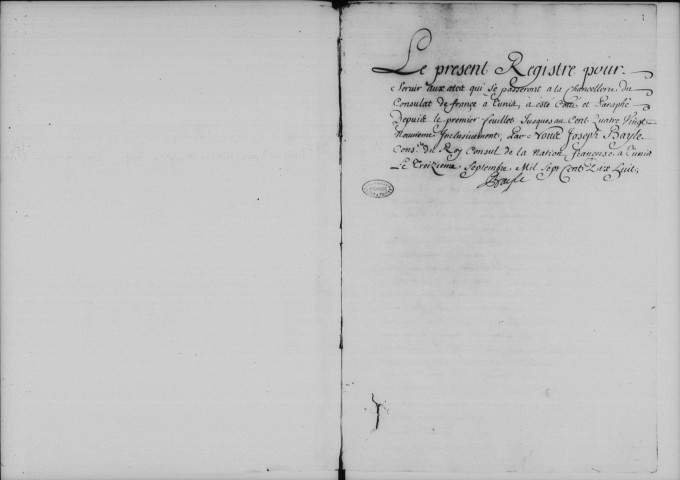 1
Le present Registre pour
Servir aux actes qui se passeront a la Chancellerie du
Consulat de france a Tunis, a este Cotté et Paraphé
Depuis le premier feuillet Jusques au Cent Quatre Vingt
Neuvieme Inclusivement, Par Nous Joseph Bayle
Consr. du Roy Consul de la Nation françoise a Tunis
Le Treizieme Septembre Mil Sept Cents Dix Huit.
Bayle